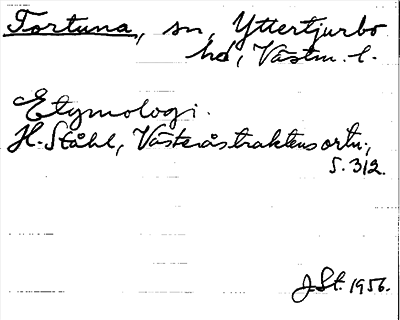 Tortuna, sn, Yttertjurbo
hd, Västm. l.
Etymologi.
H. Ståhl, Västeråstraktens ortn.,
s. 312.
J St. 1956.